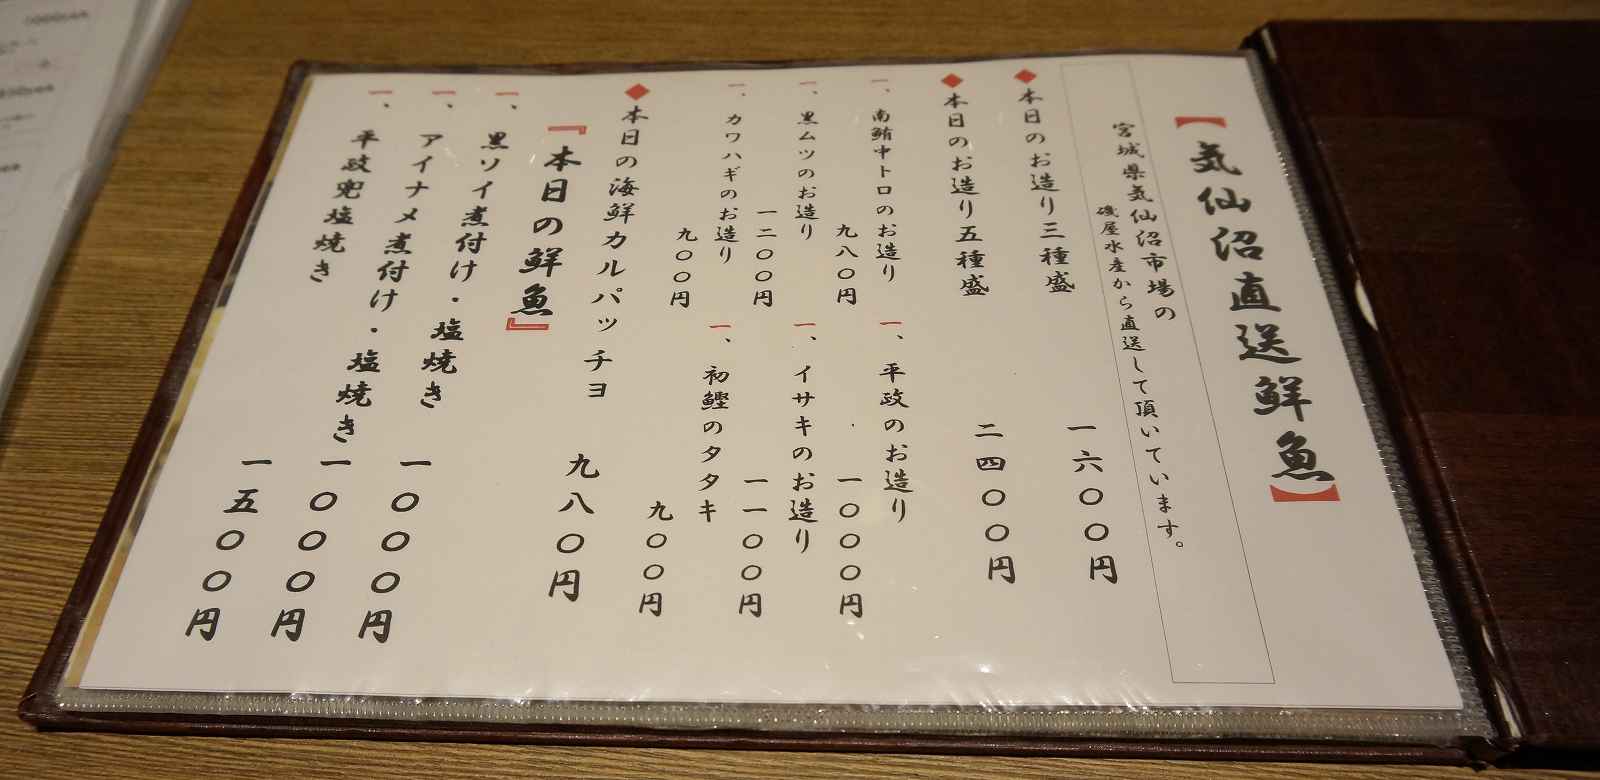 【気仙沼直送鮮魚】
宮城県気仙沼市場の
磯屋水産から直送して頂いています。
◆本日のお造り三種盛 一六〇〇円
◆本日のお造り五種盛 二四〇〇円
一、南鮪中トロのお造り 九八〇円
一、平政のお造り 一〇〇〇円
一、黒ムツのお造り 一二〇〇円
一、イサキのお造り 一一〇〇円
一、カワハギのお造り 九〇〇円
一、初鰹のタタキ 九〇〇円
◆本日の海鮮カルパッチョ 九八〇円
『本日の鮮魚』
一、黒ソイ煮付け・塩焼き 一〇〇〇円
一、アイナメ煮付け・塩焼き 一〇〇〇円
一、平政兜塩焼き 一五〇〇円